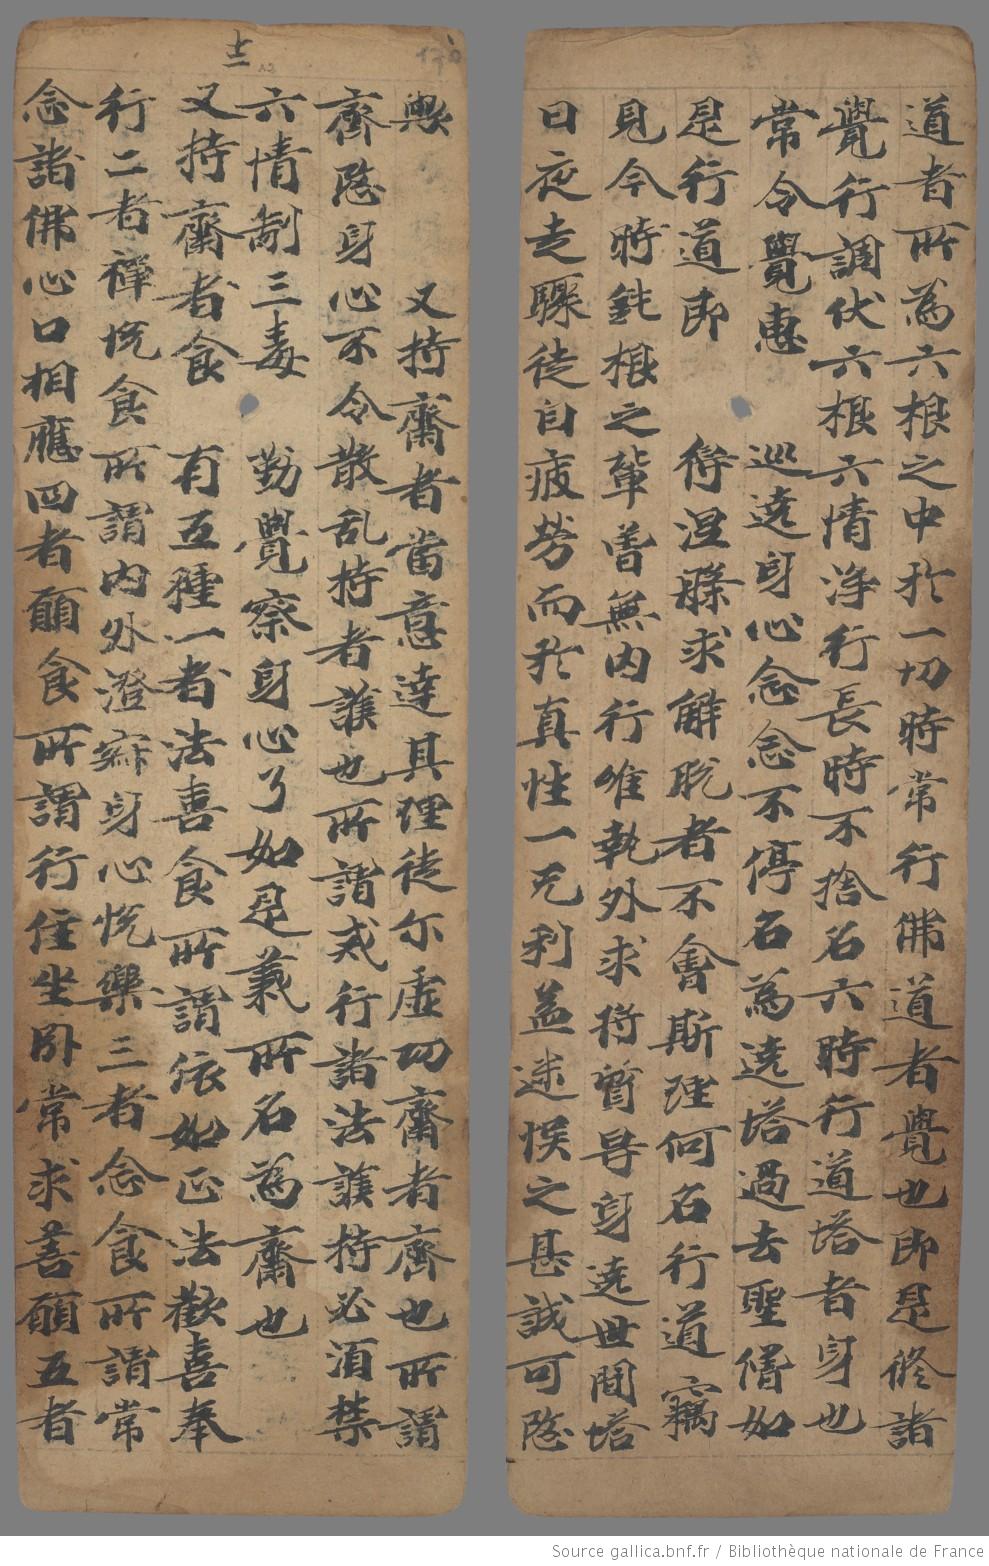 道者所為六根之中扵一切時常行佛道者覺也即是修諸
覺行調伏六根六情淨行長時不捨名六時行道塔者身也
常令覺惠　巡遶身心念念不停名為遶塔過去聖僧如
是行道即　得涅槃求解脫者不會斯理何名行道竊
見今時鈍根之輩曽無內行唯執外求将質导身遶世間塔
日夜走驟徒自疲勞而扵真性一无利益迷悮之甚誠可愍
歟　　又持齋者當意達其理徒尓虛切齋者齊也所謂
齊愍身心不令散乱持者護也所謂戒行諸法護持必須禁
六情制三毒　勤覺察身心了如是義所名為齋也
又持齋者食　有五種一者法喜食所謂依如正法歡喜奉
行二者禪悅食所謂內外澄寂身心悅樂三者念食所謂常
念諸佛心口相應四者願食所謂行住坐卧常求善願五者
十二
Source gallica.bnf.fr / Bibliothèque nationale de France